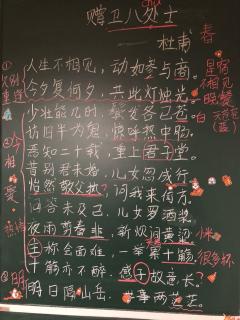 chǔ
赠卫八处士
杜甫 春
①
人生不相见，动如参与商。星宿
久别重逢 今夕复何夕，共此灯烛光。
少壮能几时，鬓发各已苍。
②
访旧半为鬼，惊呼热中肠。
焉知二十载，重上君子堂。
昔别君未婚，儿女忽成行。
怡然敬父执，问我来何方。
问答未及已，儿女罗酒浆。
夜雨剪春韭，新炊间黄粱。小米
主称会面难，一举累十觞。很多杯
十觞亦不醉，感子故意长。
③明 明日隔山岳，世事两茫茫。